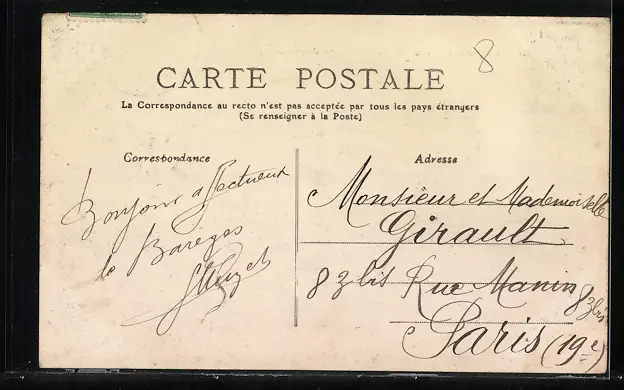 8
CARTE POSTALE
La Correspondance au recto n'est pas acceptée par tous les pays étrangers
(Se renseigner à la Poste)
Correspondance
Bonjour affectueux
de Barèges
Adresse
Monsieur et Mademoiselle
Girault
83 bis Rue Manin
83 bis
Paris (19e)